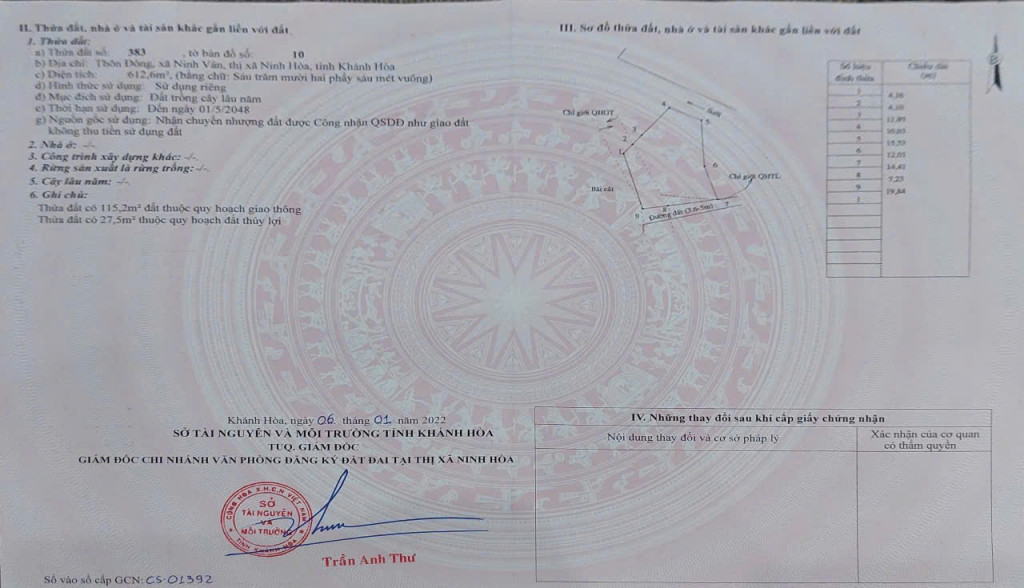 II. Thửa đất, nhà ở và tài sản khác gắn liền với đất
1. Thửa đất:
a) Thửa đất số: 383 , tờ bản đồ số: 10
b) Địa chỉ: Thôn Đông, xã Ninh Vân, thị xã Ninh Hòa, tỉnh Khánh Hòa
c) Diện tích: 612,6m², (bằng chữ: Sáu trăm mười hai phẩy sáu mét vuông)
d) Hình thức sử dụng: Sử dụng riêng
đ) Mục đích sử dụng: Đất trồng cây lâu năm
e) Thời hạn sử dụng: Đến ngày 01/5/2048
g) Nguồn gốc sử dụng: Nhận chuyển nhượng đất được Công nhận QSDĐ như giao đất
không thu tiền sử dụng đất
2. Nhà ở: -/-.
3. Công trình xây dựng khác: -/-.
4. Rừng sản xuất là rừng trồng: -/-.
5. Cây lâu năm: -/-.
6. Ghi chú:
Thửa đất có 115,2m² đất thuộc quy hoạch giao thông
Thửa đất có 27,5m² thuộc quy hoạch đất thủy lợi
III. Sơ đồ thửa đất, nhà ở và tài sản khác gắn liền với đất
Chỉ giới QHĐT
4
5
3
2
1
6
Chỉ giới QHTL
Bãi cát
9
8
7
Đường đất (3.6-5m)
Số hiệu đỉnh thửa
Chiều dài (m)
1
2
3
4
5
6
7
8
9
1
12,05
7,23
19,84
Khánh Hòa, ngày 06 tháng 01 năm 2022
SỞ TÀI NGUYÊN VÀ MÔI TRƯỜNG TỈNH KHÁNH HÒA
TUQ. GIÁM ĐỐC
GIÁM ĐỐC CHI NHÁNH VĂN PHÒNG ĐĂNG KÝ ĐẤT ĐAI TẠI THỊ XÃ NINH HÒA
CỘNG HÒA X.H.C.N VIỆT NAM
SỞ
TÀI NGUYÊN
VÀ
MÔI TRƯỜNG
TỈNH KHÁNH HÒA
Trần Anh Thư
Số vào sổ cấp GCN: CS-01392
IV. Những thay đổi sau khi cấp giấy chứng nhận
Nội dung thay đổi và cơ sở pháp lý
Xác nhận của cơ quan
có thẩm quyền